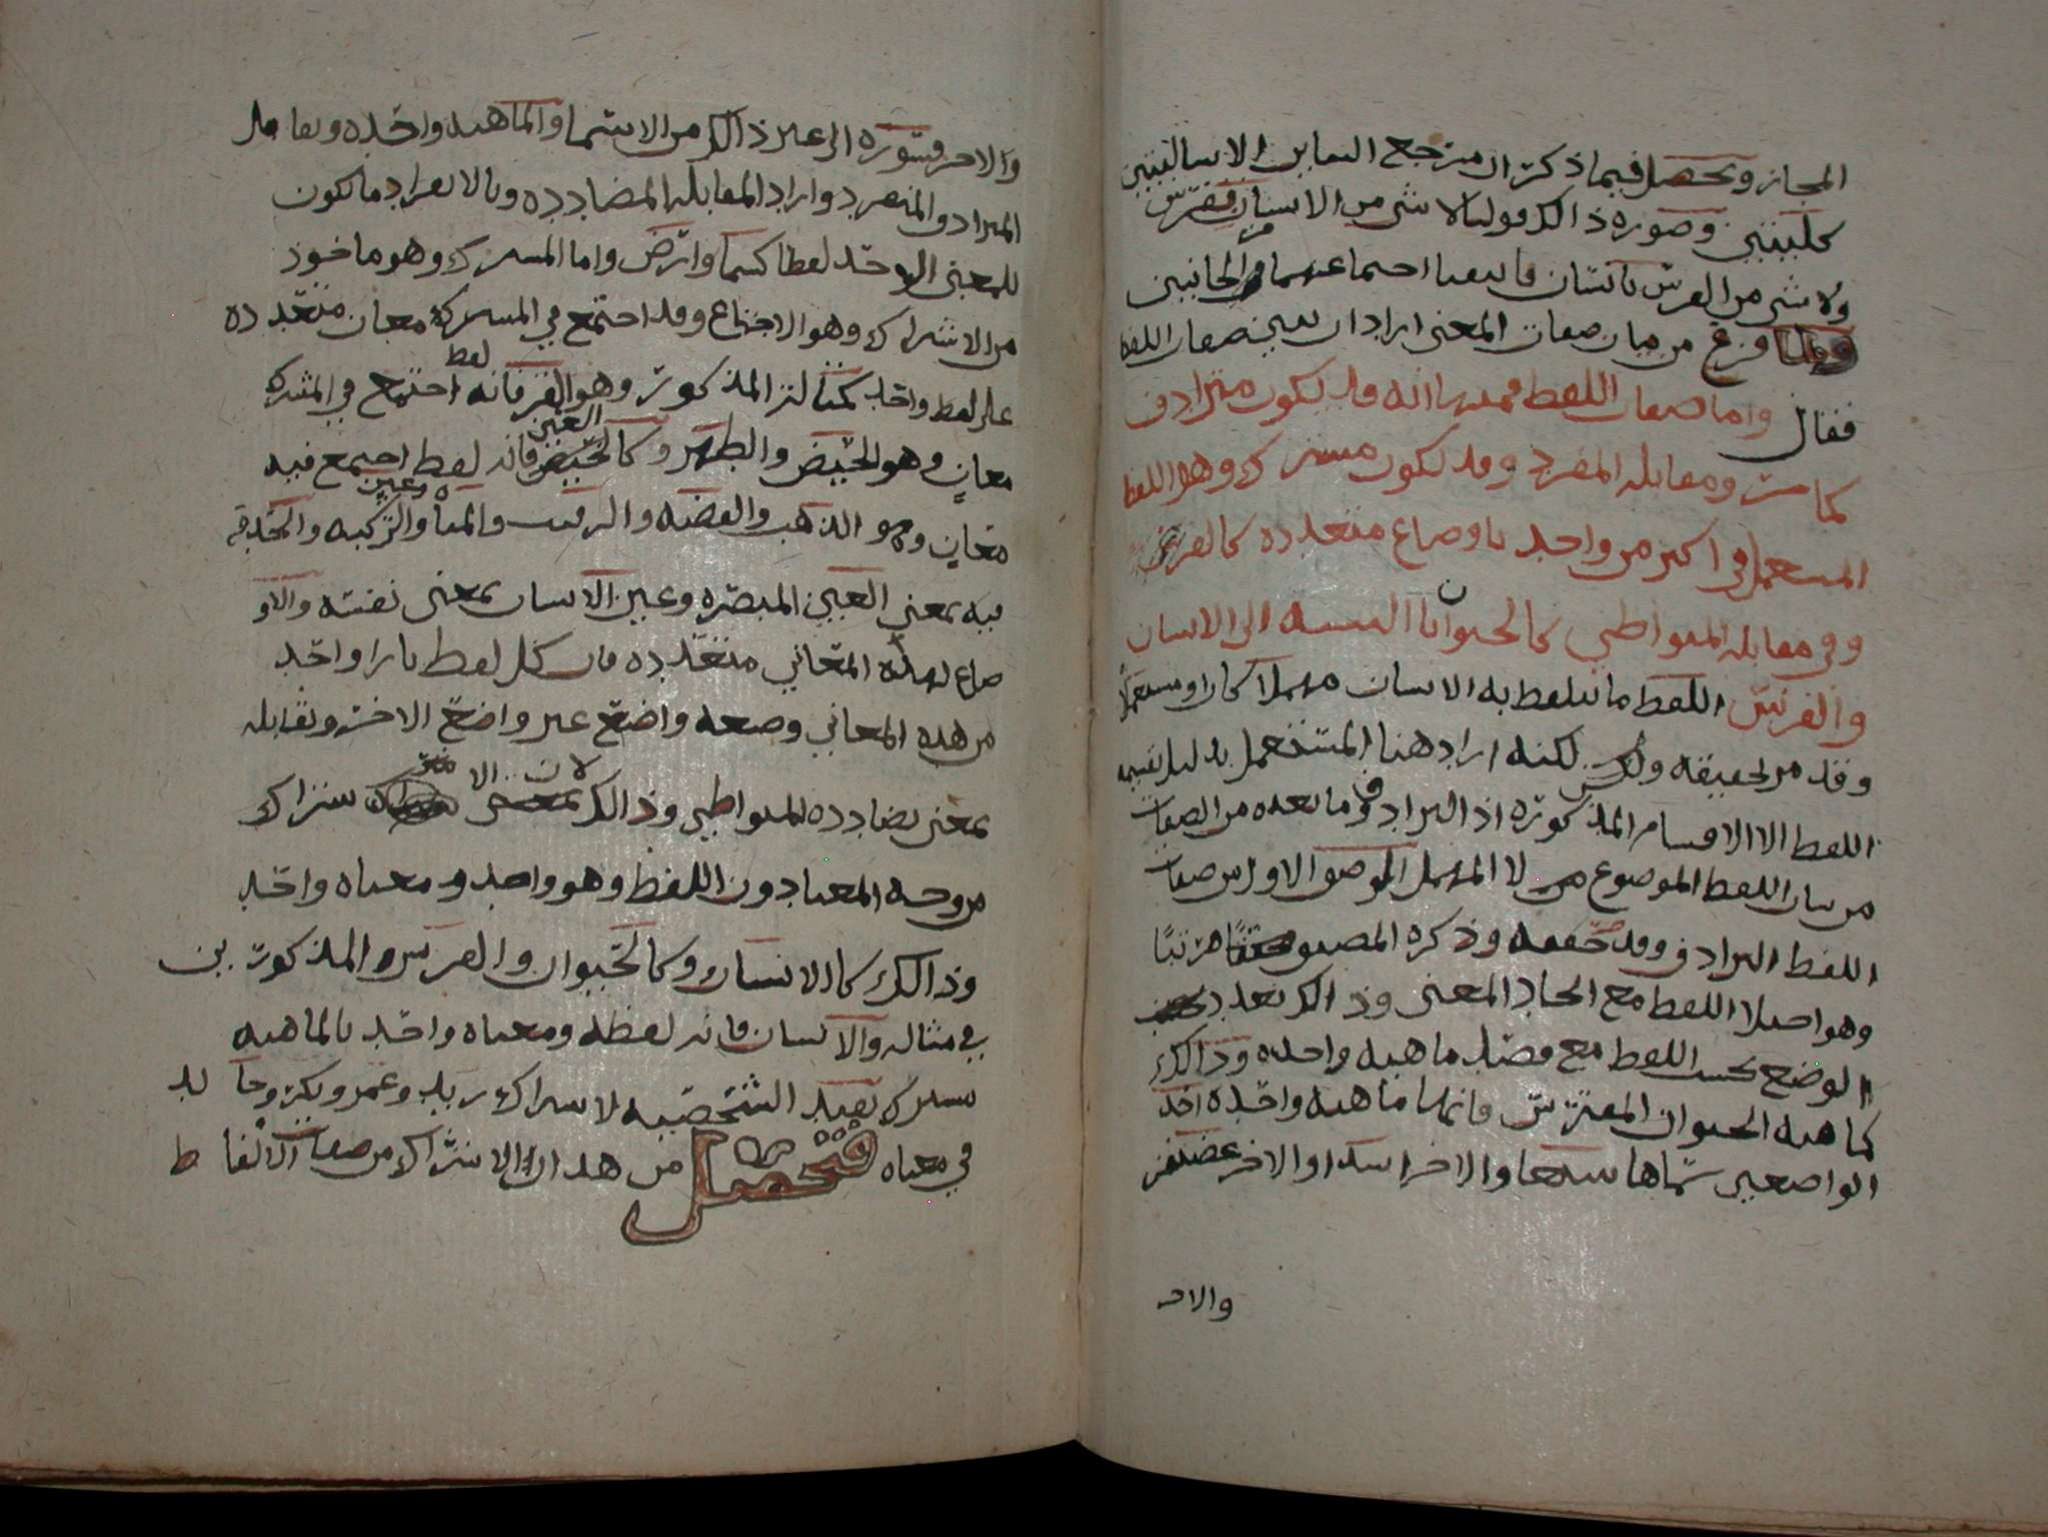 المجاز وتحصل فيما ذكر ان مرجع التباين الا سالبتين
كليتين وصوره ذالك قولنا لا شي من الانسان بفرس
ولا شي من الفرس بانسان فانتفيا اجتماعهما من الجانبين
ولما فرغ من بيان صفات المعنى اراد ان يبين صفات اللفظ
فقال واما صفات اللفظ فمنها انه قد يكون مترادف
كما مر ومقابله المفرد وقد يكون مشترك وهو اللفظ
المستعمل في اكثر من واحد باوضاع متعدده كالقرء
وفي مقابله المتواطي كالحيوان بالنسبه الى الانسان
والفرس اللفظ ما يتلفظ به الانسان مهملا كان او مستعملا
وقد مر تحقيقه لكنه اراد هنا المستعمل بدليل تقسيمه
اللفظ الا الاقسام المذكوره اذ الترادف وما بعده من الصفات
من بيان اللفظ الموضوع لا المهمل الموصوف الاول من صفات
اللفظ الترادف وقد حققه وذكره المصنف مرتبا
وهو اختلاف اللفظ مع اتحاد المعنى وذالك تعدد
الوضع بحسب اللفظ مع قصد ماهيه واحده وذالك
كماهيه الحيوان المفترس فانها ماهيه واحده احد
الواضعين سماها سبعا والاخر اسدا والاخر غضنفر
والاخر
والاخر قسوره الى غير ذالك من الاسما والماهيه واحده ويقابل
المترادف المنفرد واراد المقابله المضادده وبالانفراد ما يكون
للمعنى الواحد لفظا كسما وارض واما المشترك وهو ماخوذ
من الاشتراك وهو الاجتماع وقد اجتمع في المشترك معان متعدده
على لفظ واحد كمثال المذكور وهو القرء فانه لفظ اجتمع في المشترك
معان وهو الحيض والطهر وكالعين فانه لفظ اجتمع فيه
معان وهو الذهب والفضه والرقيب والما وعين الركبه والحدقه
فيه بمعنى العين المبصره وعين الانسان بمعنى نفسه والاو
ضاع لهذه المعاني متعدده فان كل لفظ بازا واحد
من هذه المعاني وضعه واضع غير واضع الاخر ويقابله
بمعنى يضادده المتواطي وذالك لان الاشتراك
من وجه المعنا دون اللفظ وهو واحد ومعناه واحد
وذالك كالانسان وكالحيوان والفرس المذكورين
في مثاله والانسان فانه لفظه ومعناه واحد بالماهيه
يشترك بقيد الشخصيه لاشتراك زيد وعمرو وبكر وخالد
في معناه فتحصل من هذا ان الاشتراك من صفات الالفاظ